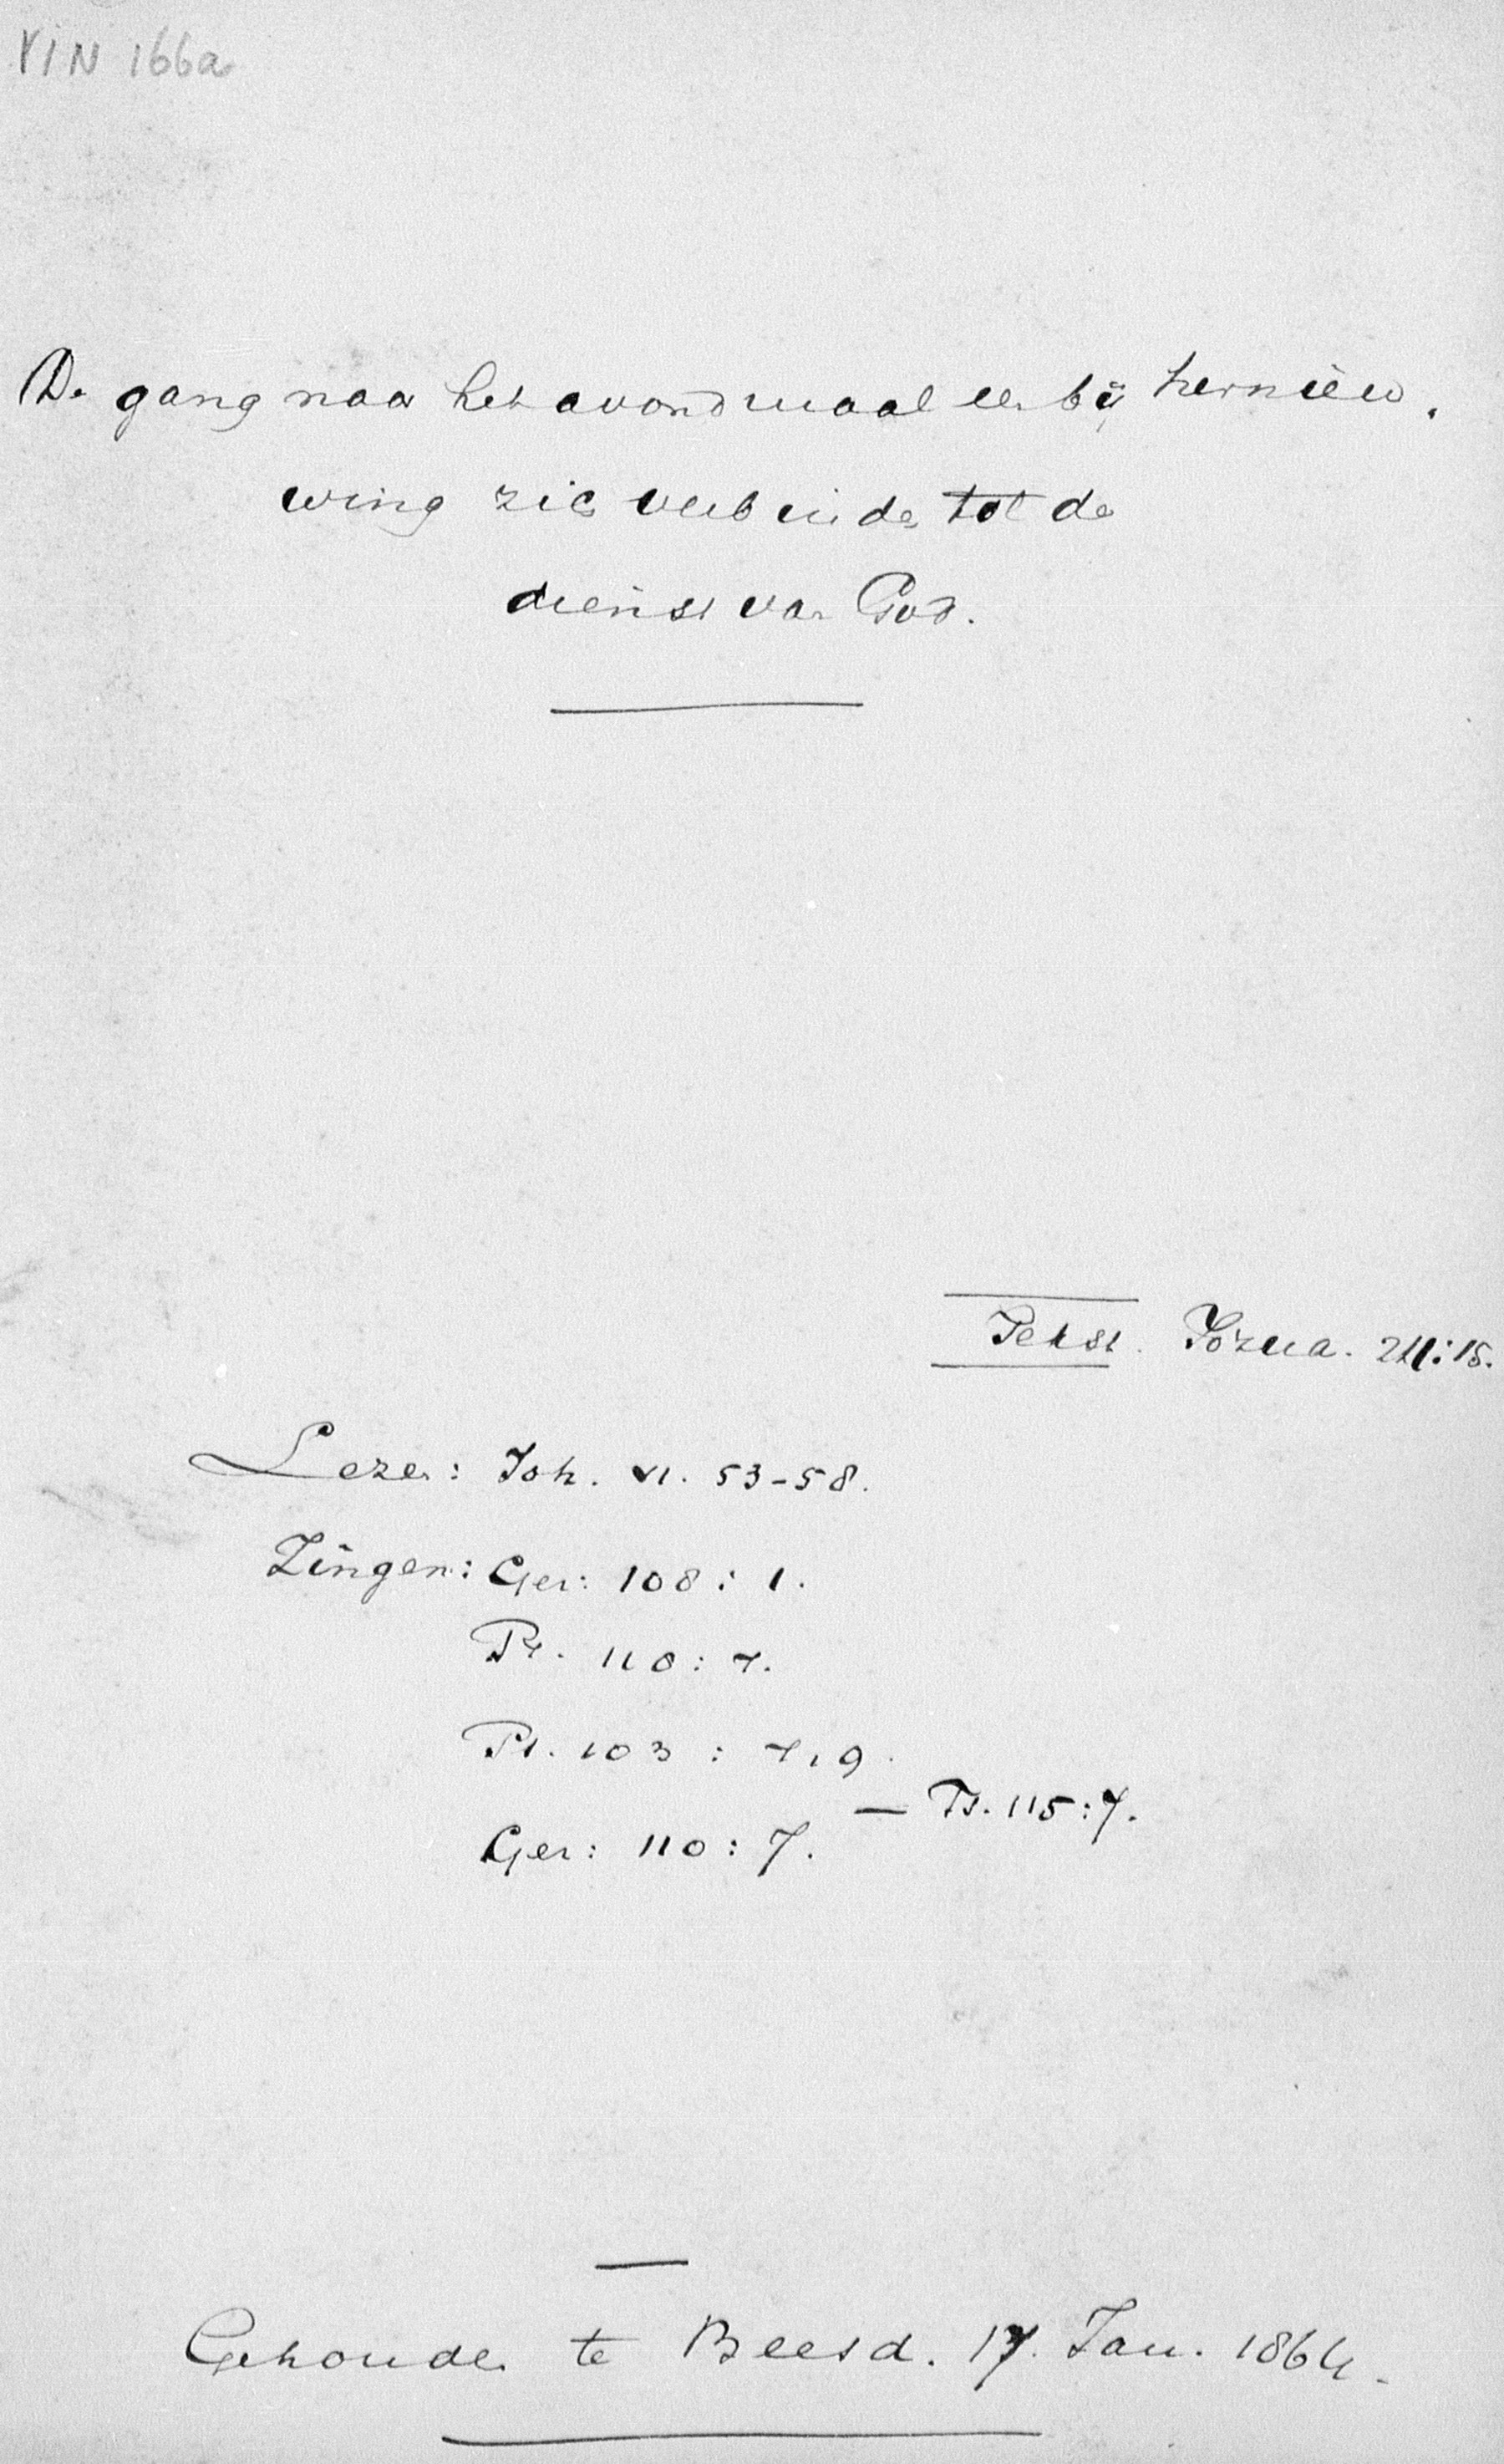 VIN 166a
De gang naar het avondmaal een bij hernieu-
wing zich verbinden tot de
dienst van God.
Tekst. Jozua. 24:15.
Lezen: Joh. VI. 53-58.
Zingen: Gez: 108 : 1.
Ps. 118 : 7.
Ps. 103 : 7, 9.
— Ps. 115 : 7.
Gez: 110 : 7.
Gehouden te Beesd. 17. Jan. 1864.